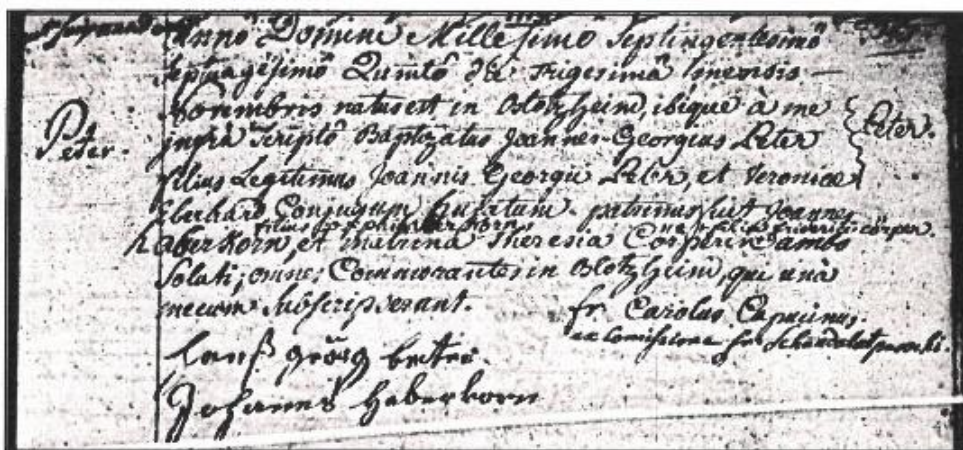 Anno Domini Millesimo Septingentesimo
septuagesimo Quinto die Trigesima mensis —
Novembris natus est in Blotzheim, ibique à me
Peter.
infra scripto Baptizatus Joannes Georgius Peter
Peter.
filius Legitimus Joannis Georgii Peter, et Veronicæ
Eberhard Conjugum patrinus fuit Joannes
filius
haberkorn, et matrina Theresia Corperin ambo
Solati; omnes Commorantes in Blotzheim, qui unà
mecum subscripserunt.
fr. Carolus Capucinus.
ex Comissione
hanß görg
Johannes Haberkorn